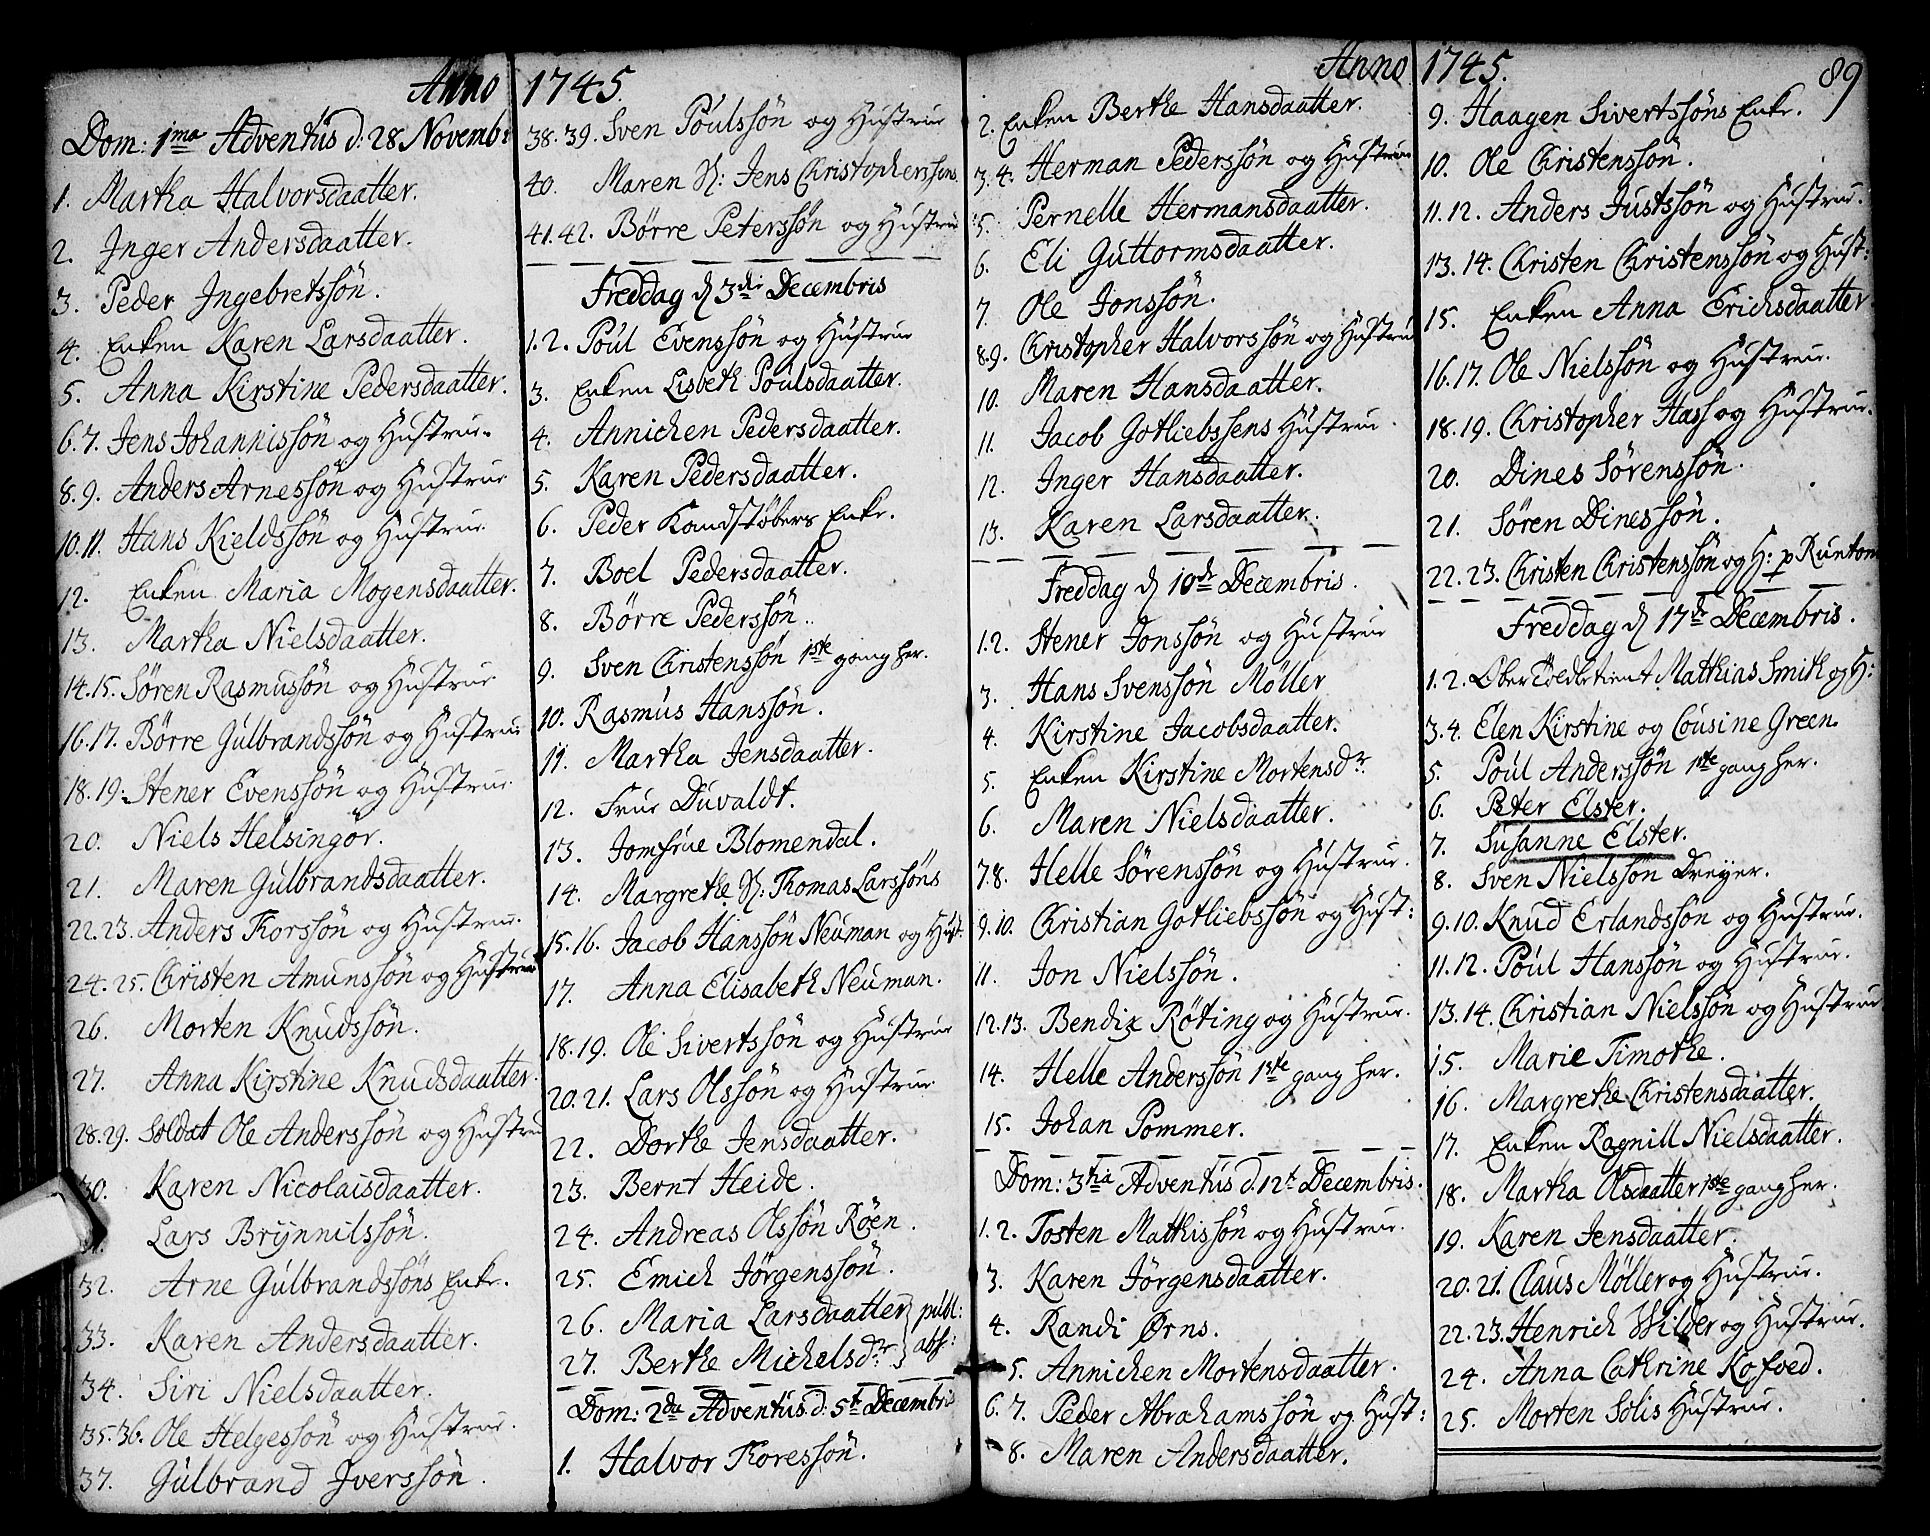 Anno 1745
Dom: 1ma Adventus d: 28 Novembr
1. Martha Halvorsdaatter.
2. Inger Andersdaatter.
3. Peder Ingebretssøn.
4. Enken Karen Larsdaatter.
5. Anna Kirstine Pedersdaatter.
6.7. Jens Johannissøn og Hustrue.
8.9. Anders Arnessøn og Hustrue
10.11. Hans Kieldssøn og Hustrue.
12. Enken Maria Mogensdaatter.
13. Martha Nielsdaatter.
14.15. Søren Rasmussøn og Hustrue
16.17. Børre Gulbrandssøn og Hustrue
18.19. Stener Evenssøn og Hustrue.
20. Niels Helsingør.
21. Maren Gulbrandsdaatter.
22.23. Anders Thorssøn og Hustrue.
24.25. Christen Amunssøn og Hustrue
26. Morten Knudssøn.
27. Anna Kirstine Knudsdaatter.
28.29. Soldat Ole Anderssøn og Hustrue
30. Karen Nicolaisdaatter.
31. Lars Brynnilssøn.
32. Arne Gulbrandssøns Enke.
33. Karen Andersdaatter.
34. Siri Nielsdaatter.
35.36. Ole Helgessøn og Hustrue.
37. Gulbrand Iverssøn.
38.39. Sven Poulssøn og Hustrue
40. Maren H: Jens Christopherssøns.
41.42. Børre Peterssøn og Hustrue
Freddag d 3die Decembris
1.2. Poul Evenssøn og Hustrue
3. Enken Lisbeth Poulsdaatter.
4. Annichen Pedersdaatter.
5. Karen Pedersdaatter.
6. Peder Kandstøbers Enke.
7. Boel Pedersdaatter.
8. Børre Pederssøn.
9. Sven Christenssøn 1ste gang her.
10. Rasmus Hanssøn.
11. Martha Jensdaatter.
12. Frue Duvaldt.
13. Jomfrue Blomendal.
14. Margrethe H: Thomas Larssøns
15.16. Jacob Hanssøn Neuman og Hust.
17. Anna Elisabeth Neuman.
18.19. Ole Sivertssøn og Hustrue
20.21. Lars Olssøn og Hustrue
22. Dorthe Jensdaatter.
23. Bernt Heide.
24. Andreas Olssøn Røen.
25. Emich Jørgenssøn.
26. Maria Larsdaatter } publ:
27. Berthe Michelsdr } abs:
Dom: 2da Adventus. d: 5t Decembris
1. Halvor Thoressøn.
Anno 1745. 89
2. Enken Berthe Hansdaatter.
3.4. Herman Pederssøn og Hustrue
5. Pernelle Hermansdaatter.
6. Eli Guttormsdaatter.
7. Ole Jonssøn.
8.9. Christopher Halvorssøn og Hustrue
10. Maren Hansdaatter.
11. Jacob Gotliebssens Hustrue.
12. Inger Hansdaatter.
13. Karen Larsdaatter.
Freddag d 10de Decembris.
1.2. Stener Jonssøn og Hustrue
3. Hans Svenssøn Møller
4. Kirstine Jacobsdaatter.
5. Enken Kirstine Mortensdr.
6. Maren Nielsdaatter.
7.8. Helle Sørenssøn og Hustrue.
9.10. Christian Gotliebssøn og Hust:
11. Jon Nielssøn.
12.13. Bendix Røting og Hustrue.
14. Helle Anderssøn 1ste gang her.
15. Johan Pommer.
Dom: 3tia Adventus d. 12t Decembris.
1.2. Tosten Mathissøn og Hustrue.
3. Karen Jørgensdaatter.
4. Randi Ørns.
5. Annichen Mortensdaatter.
6.7. Peder Abrahamssøn og Hust:
8. Maren Andersdaatter.
9. Haagen Sivertssøns Enke.
10. Ole Christenssøn.
11.12. Anders Justssøn og Hustrue.
13.14. Christen Christenssøn og Hust:
15. Enken Anna Erichsdaatter
16.17. Ole Nielssøn og Hustrue.
18.19. Christopher Hass og Hustrue.
20. Dines Sørenssøn.
21. Søren Dinessøn.
22.23. Christen Christenssøn og H: p Runtom
Freddag d 17de Decembris.
1.2. Ober Mathias Smith og H:
3.4. Elen Kirstine og Cousine Green.
5. Poul Anderssøn 1ste gang her.
6. Peter Elster.
7. Susanne Elster.
8. Sven Nielssøn Dreyer.
9.10. Knud Erlandssøn og Hustrue.
11.12. Poul Hanssøn og Hustrue.
13.14. Christian Nielssøn og Hustrue
15. Marie Timothe.
16. Margrethe Christensdaatter.
17. Enken Ragnill Nielsdaatter.
18. Martha Olsdaatter 1ste gang her.
19. Karen Jensdaatter.
20.21. Claus Møller og Hustrue.
22.23. Henrich Wilder og Hustrue.
24. Anna Cathrine Kofoed.
25. Morten Solis Hustrue.